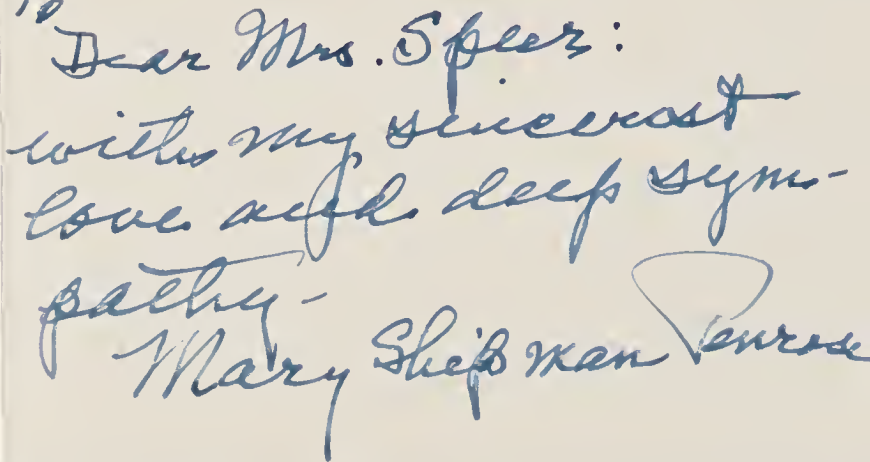 Dear Mrs. Speer:
with my sincerost
love and deep sym-
pathy-
Mary Shipman Penrose